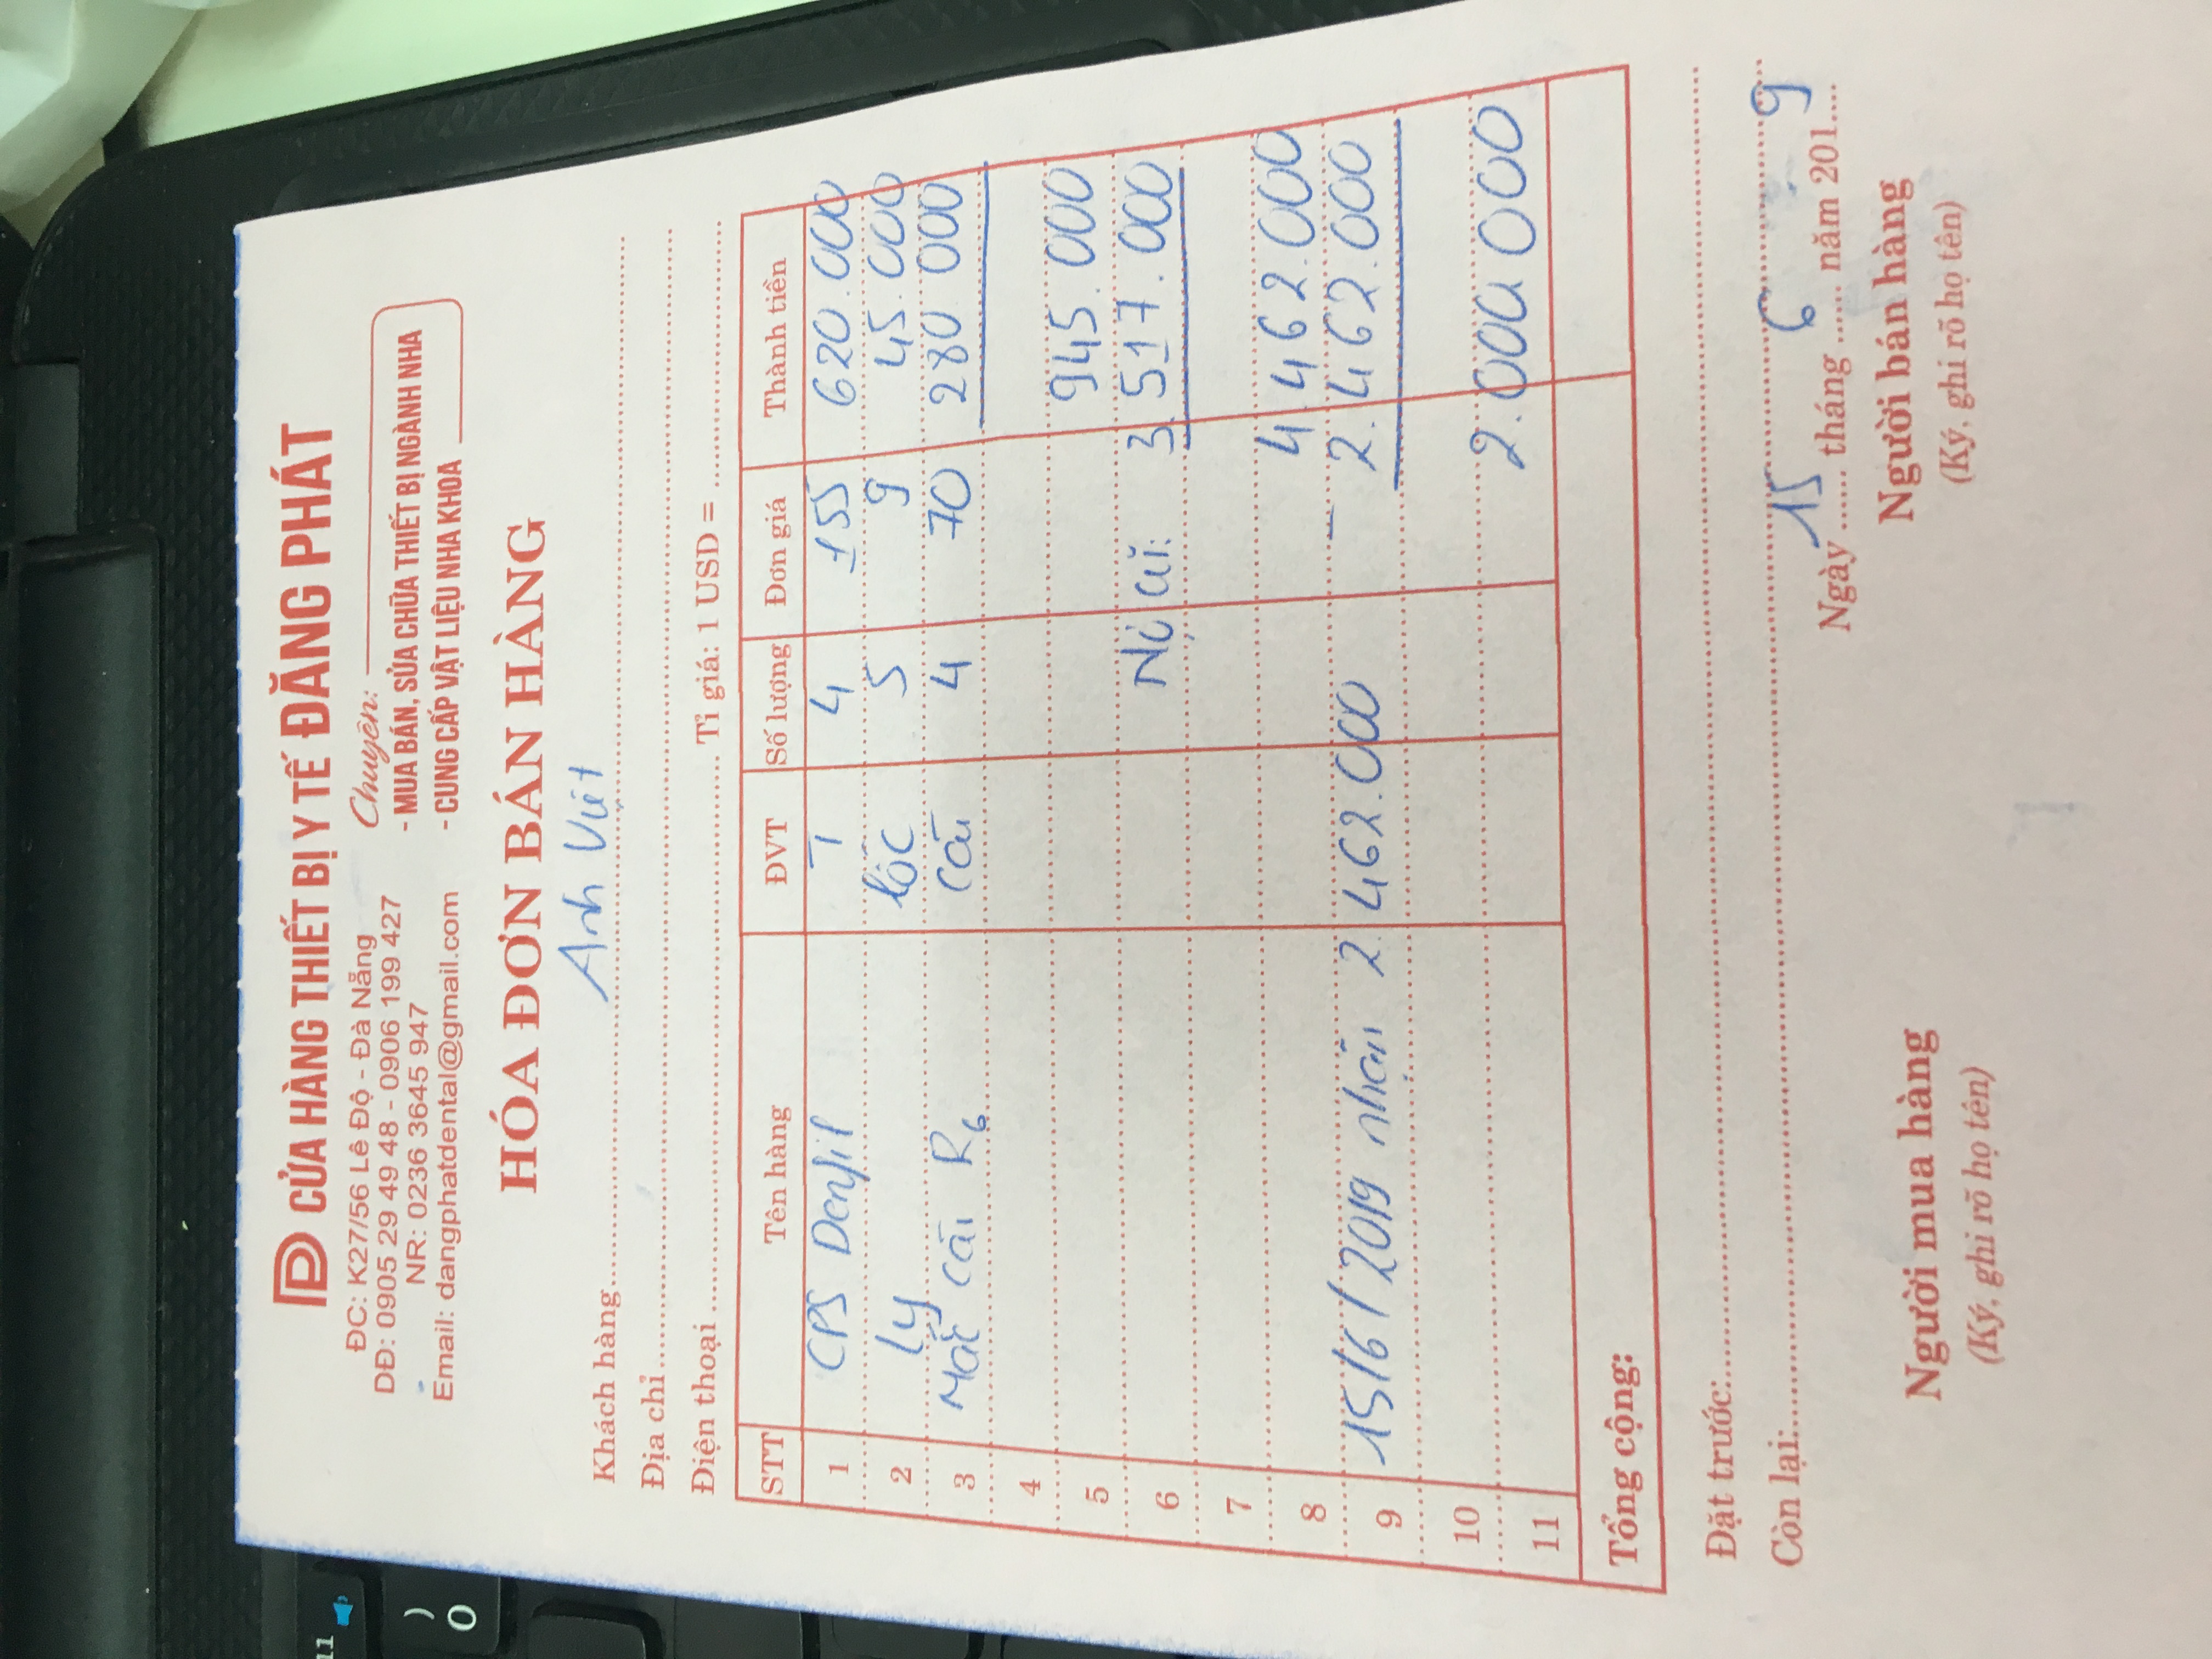 11
)
0
CỬA HÀNG THIẾT BỊ Y TẾ ĐĂNG PHÁT
ĐC: K27/56 Lê Độ - Đà Nẵng
DĐ: 0905 29 49 48 - 0906 199 427
NR: 0236 3645 947
Email: dangphatdental@gmail.com
Chuyên:
- MUA BÁN, SỬA CHỮA THIẾT BỊ NGÀNH NHA
- CUNG CẤP VẬT LIỆU NHA KHOA
HÓA ĐƠN BÁN HÀNG
Khách hàng Anh Việt
Địa chỉ
Điện thoại Tỉ giá: 1 USD =
STT Tên hàng ĐVT Số lượng Đơn giá Thành tiền
1 CPS Denfil T 4 155 620.000
2 Ly lốc 5 9 45.000
3 Mắc cài R6 cái 4 70 280 000
4
5 945.000
6 Nợ cũ: 3.517.000
7
8 4.462.000
9 15/6/2019 nhận 2.462.000 - 2.462.000
10
11 2.000.000
Tổng cộng:
Đặt trước:
Còn lại:
Ngày 15 tháng 6 năm 2019
Người mua hàng Người bán hàng
(Ký, ghi rõ họ tên) (Ký, ghi rõ họ tên)